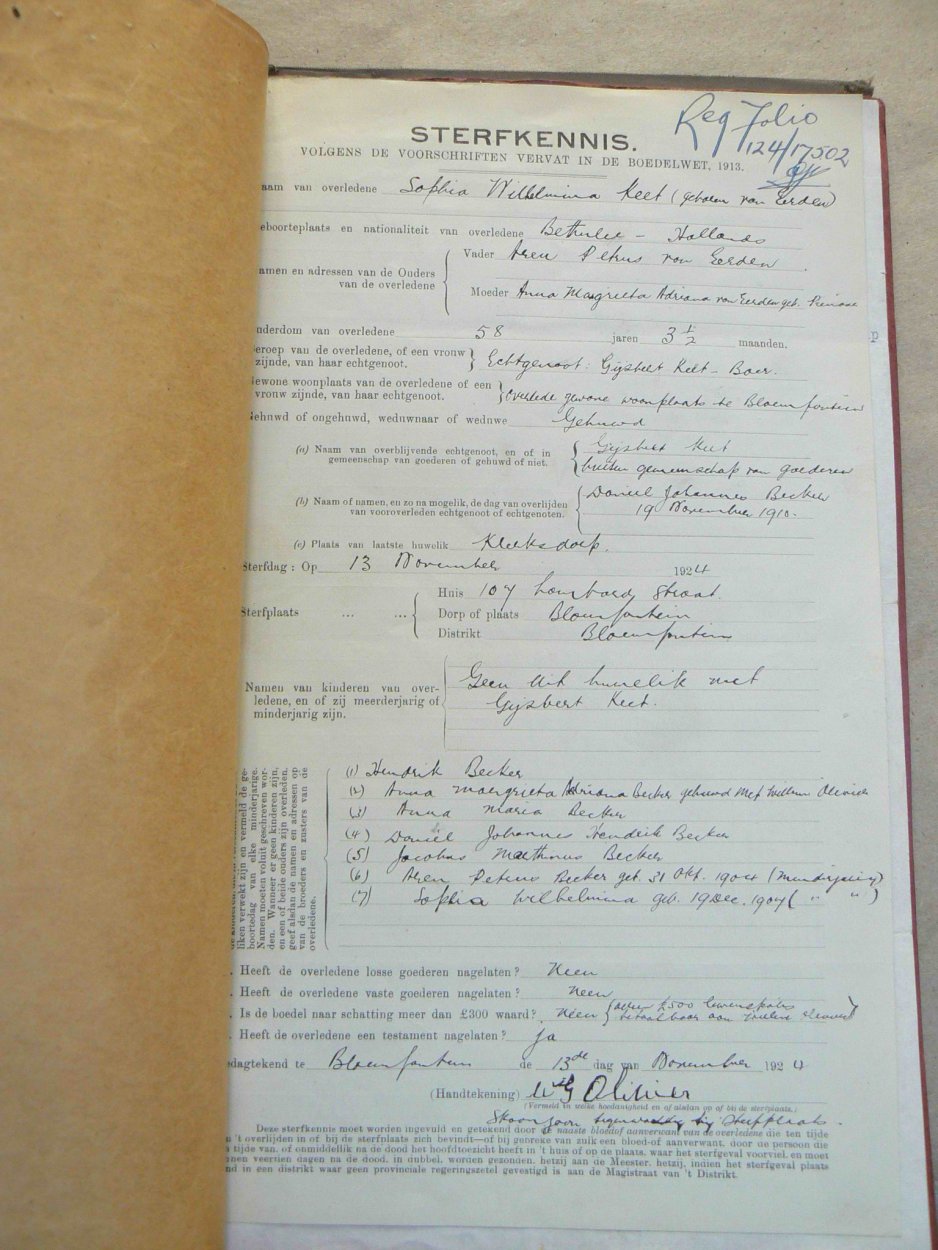 Reg Folio
124/17502
STERFKENNIS.
VOLGENS DE VOORSCHRIFTEN VERVAT IN DE BOEDELWET, 1913.
aam van overledene Sophia Wilhelmina Keet (geboren van Eerden)
eboorteplaats en nationaliteit van overledene Bethulie - Hollands
amen en adressen van de Ouders van de overledene
Vader Aren Petrus van Eerden
Moeder Anna Margrieta Adriana van Eerden geb.
uderdom van overledene 58 jaren 3 1/2 maanden.
eroep van de overledene, of een vrouw zijnde, van haar echtgenoot. Echtgenoot: Gijsbert Keet - Boer.
ewone woonplaats van de overledene of een vrouw zijnde, van haar echtgenoot. Overlede gewone woonplaats te Bloemfontein
ehuwd of ongehuwd, weduwnaar of weduwe Gehuwd
(a) Naam van overblijvende echtgenoot, en of in gemeenschap van goederen of gehuwd of niet.
Gijsbert Keet
buiten gemeenschap van goederen
(b) Naam of namen, en zo na mogelik, de dag van overlijden van vooroverleden echtgenoot of echtgenoten.
Daniel Johannes Becker
19 November 1910.
(c) Plaats van laatste huwelik Klerksdorp.
Sterfdag: Op 13 November 1924
Sterfplaats ... ...
Huis 107 Lombard Straat.
Dorp of plaats Bloemfontein
Distrikt Bloemfontein
Namen van kinderen van overledene, en of zij meerderjarig of minderjarig zijn.
Geen uit huwelik met
Gijsbert Keet.
liken verwekt zijn en vermeld de geboortedag van elke minderjarige. Namen moeten voluit geschreven worden. Wanneer er geen kinderen zijn, en een of beide ouders zijn overleden, geef alsdan de namen en adressen op van de broeders en zusters van de overledene.
(1) Hendrik Becker
(2) Anna Margrieta Adriana Becker gehuwd met Willem Olivier
(3) Anna Maria Becker
(4) Daniel Johannes Hendrik Becker
(5) Jacobus Matthinus Becker
(6) Aren Petrus Becker geb. 31 Okt. 1904 (Minderjarig)
(7) Sophia Wilhelmina geb. 19 Dec. 1907 ( " " )
. Heeft de overledene losse goederen nagelaten? Neen
. Heeft de overledene vaste goederen nagelaten? Neen
. Is de boedel naar schatting meer dan £300 waard? Neen £500 betaalbaar aan
. Heeft de overledene een testament nagelaten? ja
edagtekend te Bloemfontein de 13de dag van November 1924
(Handtekening) Olivier
(Vermeld in welke hoedanigheid en of alsdan op of bij de sterfplaats.)
Skoonzoon tegenwoordig bij Sterfplaats.
Deze sterfkennis moet worden ingevuld en getekend door de naaste bloedof aanverwant van de overledene die ten tijde
n 't overlijden in of bij de sterfplaats zich bevindt—of bij gebreke van zulk een bloed-of aanverwant, door de persoon die
n tijde van, of onmiddellik na de dood het hoofdtoezicht heeft in 't huis of op de plaats, waar het sterfgeval voorviel, en moet
nnen veertien dagen na de dood, in dubbel, worden gezonden, hetzij aan de Meester, hetzij, indien het sterfgeval plaats
nd in een distrikt waar geen provinciale regeringszetel gevestigd is aan de Magistraat van 't Distrikt.